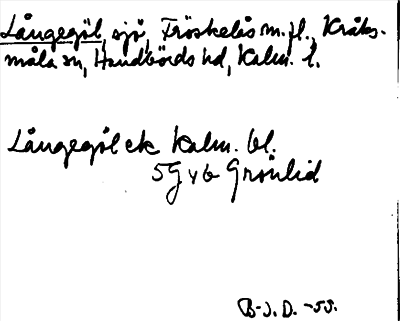 Långegöl, sjö, Fröskelås m.fl., Kråks-
måla sn, Handbörds hd, Kalm. l.
Långegöl ek Kalm. bl.
5G v b Grönlid
B-J. D. -55.